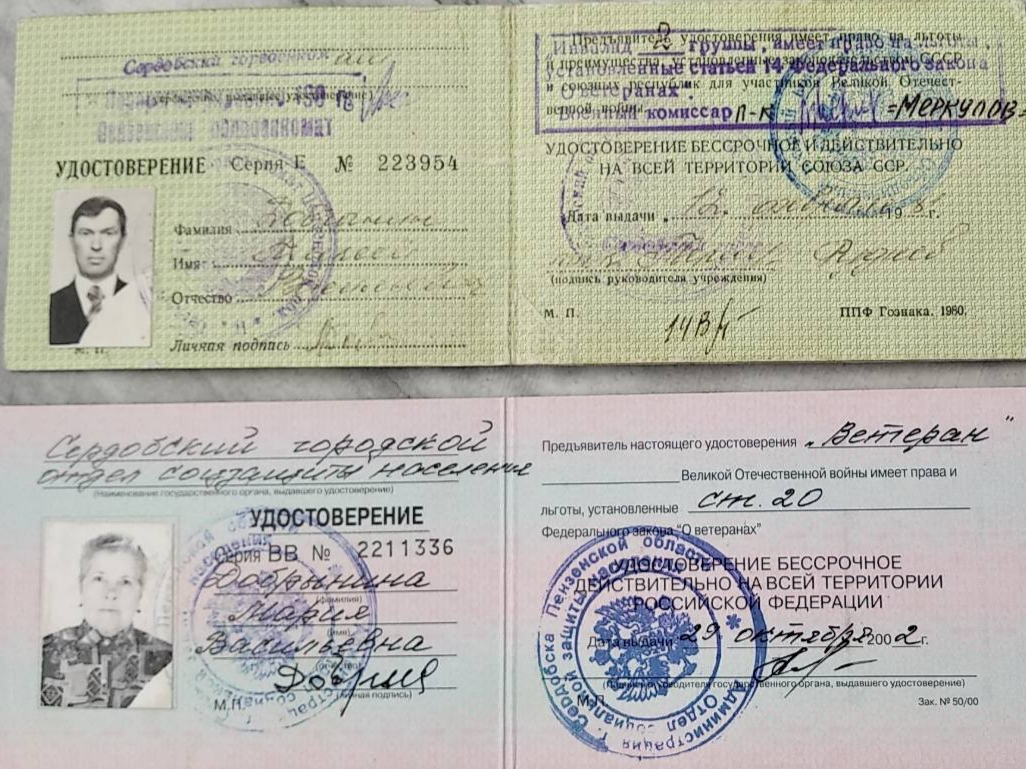 Сердобский горвоенкомат
УДОСТОВЕРЕНИЕ Серия Е № 223954
Фамилия
Имя
Отчество
Личная подпись
М. П.
Предъявитель удостоверения имеет право на льготы
и преимущества, установленные законодательством СССР
и союзных республик для участников Великой Отечест-
венной войны.
Инвалид 2 группы, имеет право на льготы,
установленные статьей 14 Федерального закона
О ветеранах.
Военный комиссар П-К Меркулов
УДОСТОВЕРЕНИЕ БЕССРОЧНОЕ И ДЕЙСТВИТЕЛЬНО
НА ВСЕЙ ТЕРРИТОРИИ СОЮЗА ССР.
Дата выдачи 19 г.
(подпись руководителя учреждения)
М. П.
ППФ Гознака. 1980.
Сердобский городской
отдел соцзащиты населения
(Наименование государственного органа, выдавшего удостоверение)
УДОСТОВЕРЕНИЕ
Серия ВВ № 2211336
Добрынина
(фамилия)
Мария
(имя)
Васильевна
(отчество)
(личная подпись)
М.П.
Предъявитель настоящего удостоверения „Ветеран"
Великой Отечественной войны имеет права и
льготы, установленные ст. 20
Федерального закона "О ветеранах"
УДОСТОВЕРЕНИЕ БЕССРОЧНОЕ
ДЕЙСТВИТЕЛЬНО НА ВСЕЙ ТЕРРИТОРИИ
РОССИЙСКОЙ ФЕДЕРАЦИИ
Дата выдачи 29 октября 2002 г.
(подпись руководителя государственного органа, выдавшего удостоверение)
М.П.
Зак. № 50/00